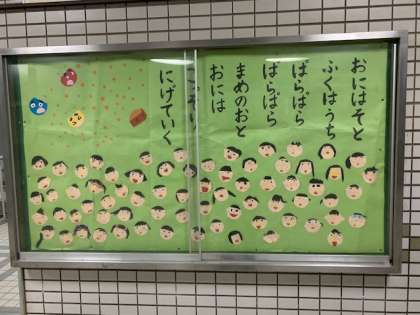 おにはそと
ふくはうち
ぱらぱら
ぱらぱら
まめのおと
おには
こっそり
にげていく